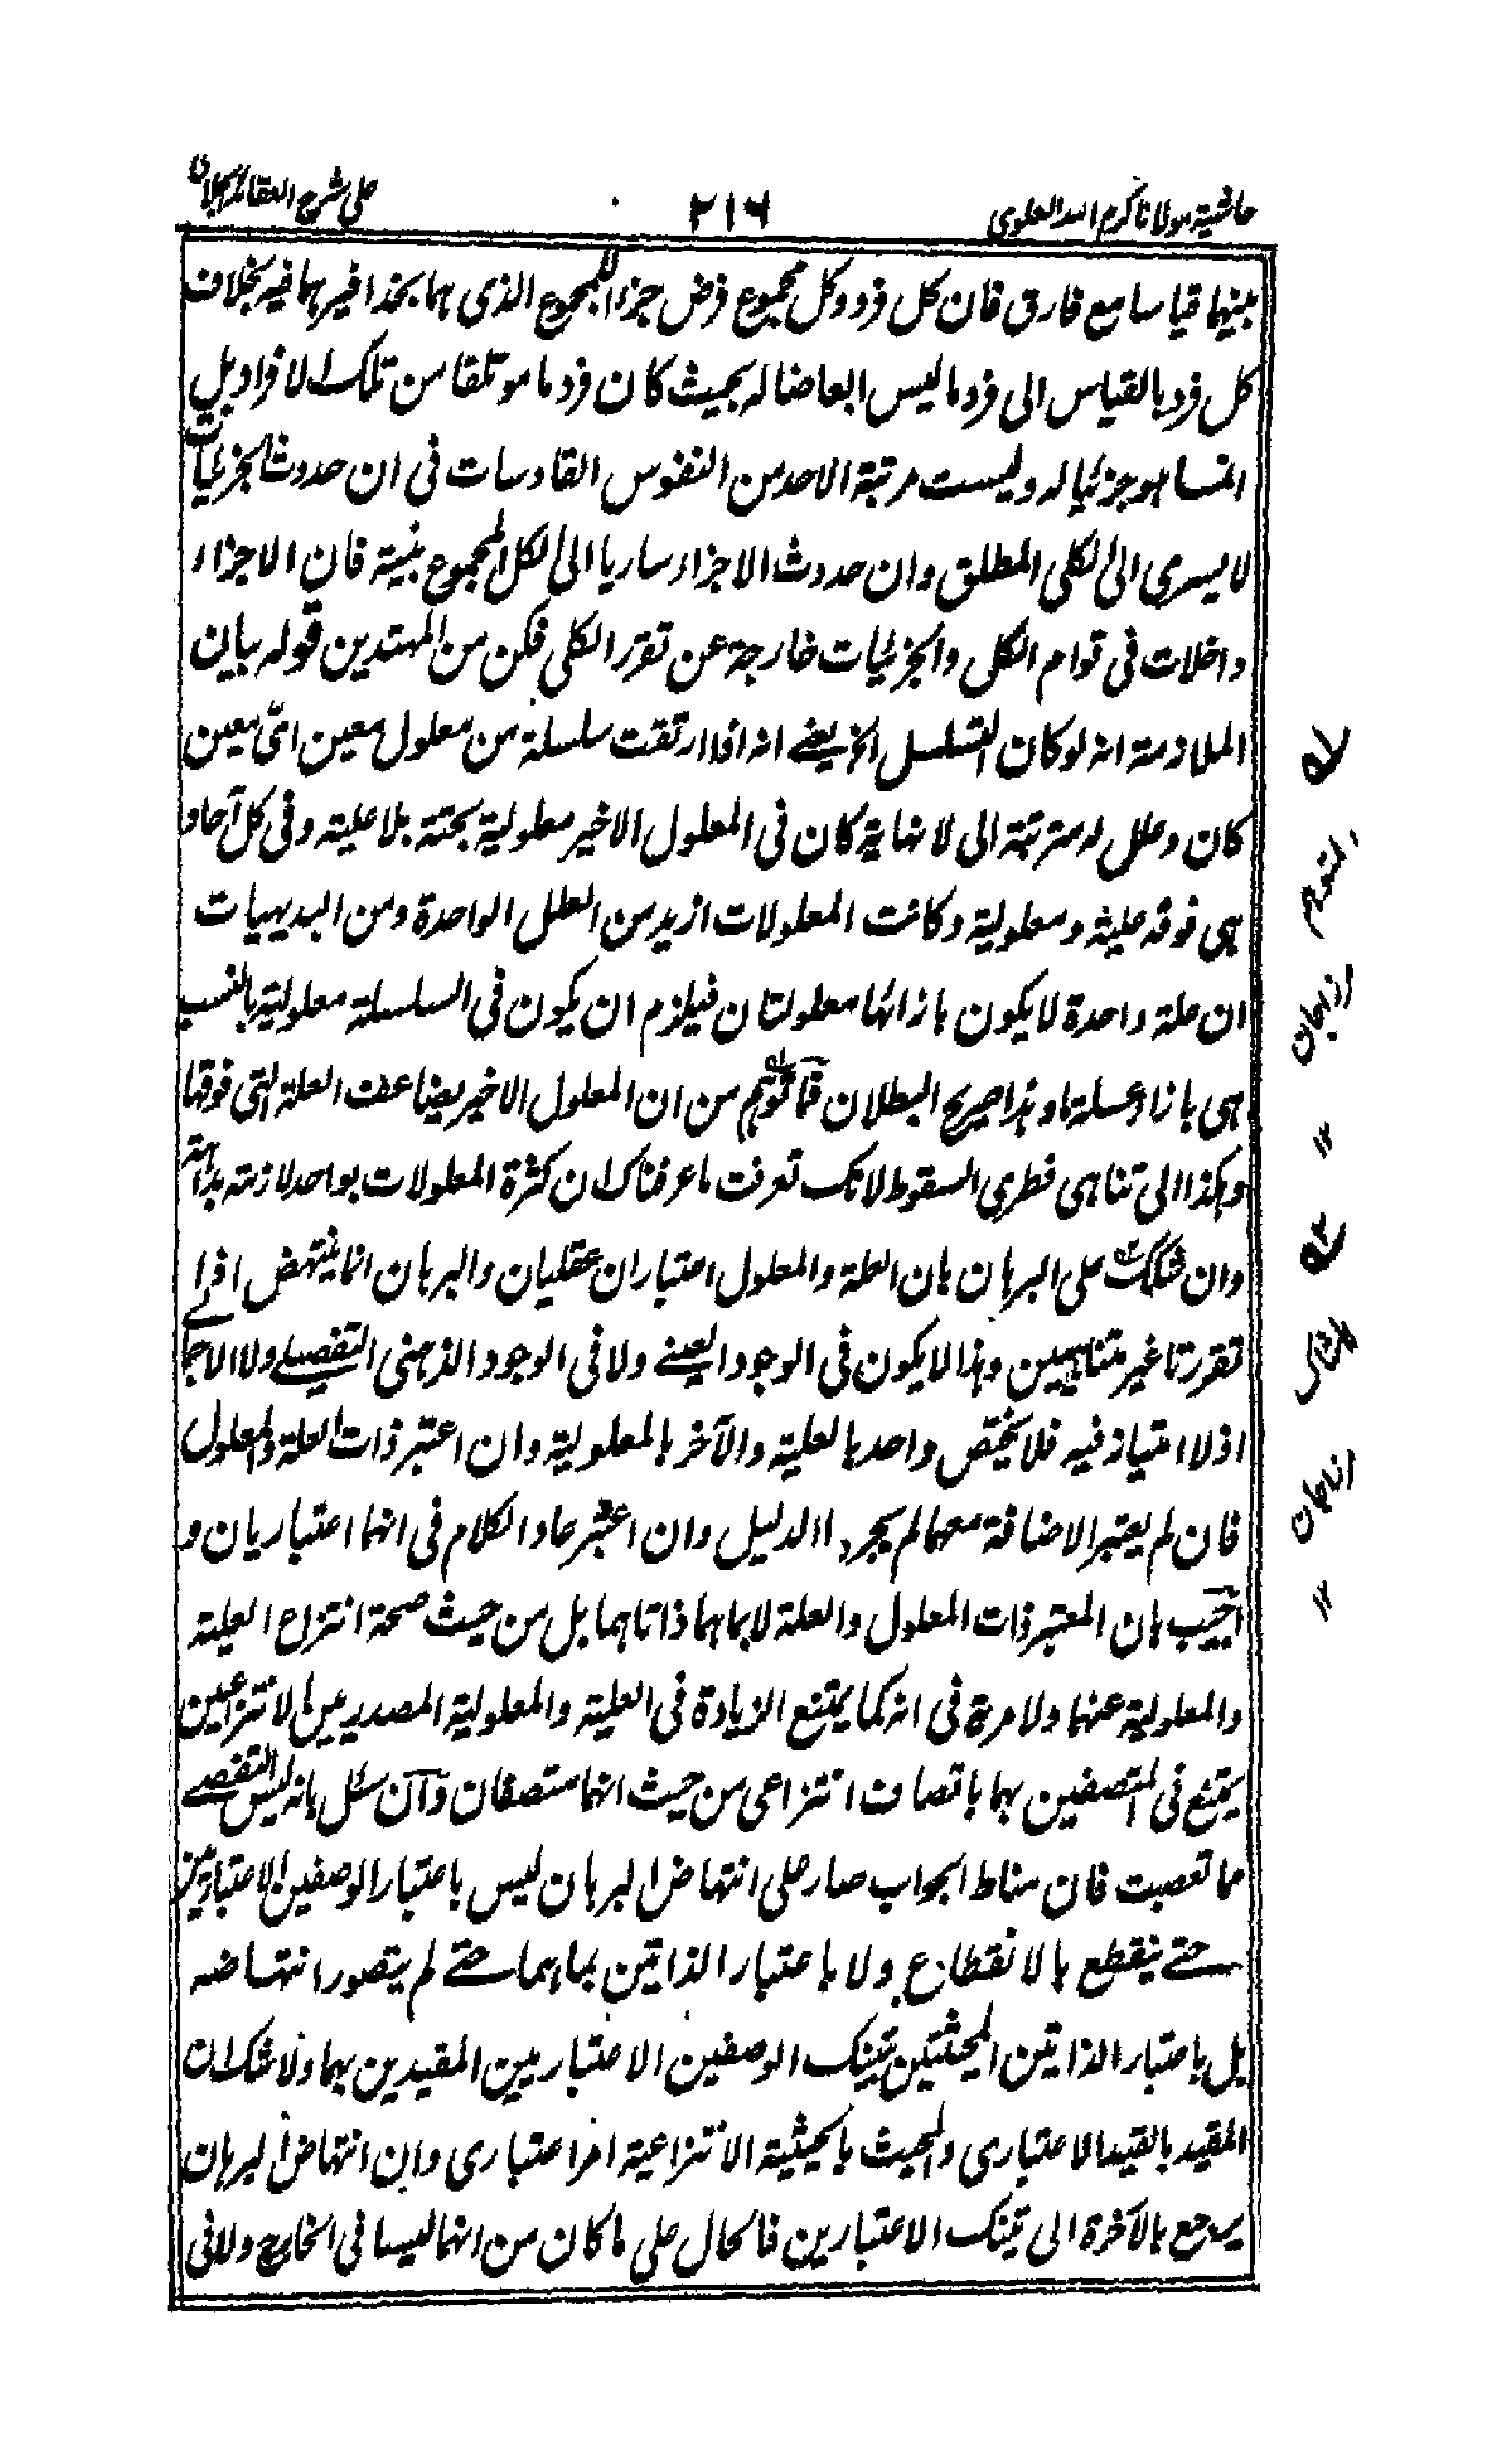 حاشية مولانا كرم الله العلوى
٢١٦
على شرح العقائد
بينهما قياسا مع فارق فان كل فرد وكل مجموع فرض جزء للمجموع الذى هما بحذافيرهما فيه بخلاف
كل فرد بالقياس الى فرد ما ليس ابعاضا له بحيث كان فرد ما موتلفا من تلك الافراد بل
انما هو جزئيا له وليست مرتبة الاحد من النفوس القادسات فى ان حدوث الجزئيات
لا يسرى الى الكلى المطلق وان حدوث الاجزاء ساريا الى الكل المجموع بنية فان الاجزاء
داخلات فى قوام الكل والجزئيات خارجة عن تقرر الكلى فكن من المهتدين قوله بيان
الملازمة انه لو كان التسلسل الخ يعنے انه اذا ارتقت سلسلة من معلول معين اىّ معين
كان وعلل له مترتبة الى لا نهاية كان فى المعلول الاخير معلولية بحتة بلا علية وفى كل آحاد
هى فوقه علية ومعلولية وكانت المعلولات ازيد من العلل الواحدة ومن البديهيات
ان علة واحدة لا يكون بازائها معلولتان فيلزم ان يكون فى السلسلة معلولية بالنسب
هى بازاء علة ما وهذا صريح البطلان فما توهم من ان المعلول الاخير يضاعف العلة التى فوقها
وهكذا الى تناهى فطرى السقوط لانك تعرفت ما عرفناك ان كثرة المعلولات بواحد لازمة بداهة
وان شكك على البرهان بان العلة والمعلول اعتباران عقليان والبرهان انما ينتهض اذا
تقررتا غير متناهيين وهذا لا يكون فى الوجود العينے ولا فى الوجود الذهنى التفصيلے ولا الاجمالے
اذ لا امتياز فيه فلا يختص واحد بالعلية والآخر بالمعلولية وان اعتبر ذات العلة والمعلول
فان لم يعتبر الاضافة معهما لم يجر الدليل وان اعتبر عاد الكلام فى انهما اعتباريان و
اجيب بان المعتبر ذات المعلول والعلة لا بما هما ذاتاهما بل من حيث صحة انتزاع العلية
والمعلولية عنهما ولا مرية فى انه كما يمتنع الزيادة فى العلية والمعلولية المصدريين الانتزاعيين
يمتنع فى المتصفين بهما باتصاف انتزاعى من حيث انهما متصفان وآن سئل بانه ليس التفصے
ما تعصبت فان مناط الجواب صار على انتهاض البرهان ليس باعتبار الوصفين الاعتباريين
حتے ينقطع بالانقطاع ولا باعتبار الذاتين بما هما حتے لم يتصور انتهاضه
بل باعتبار الذاتين المحيثتين بتينك الوصفين الاعتباريين المقيدين بهما ولا شك ان
المقيد بالقيد الاعتبارى والمحيث بالحيثية الانتزاعية امر اعتبارى وان انتهاض البرهان
يرجع بالآخرة الى تينك الاعتبارين فالحال على ما كان من انهما ليسا فى الخارج ولا فى